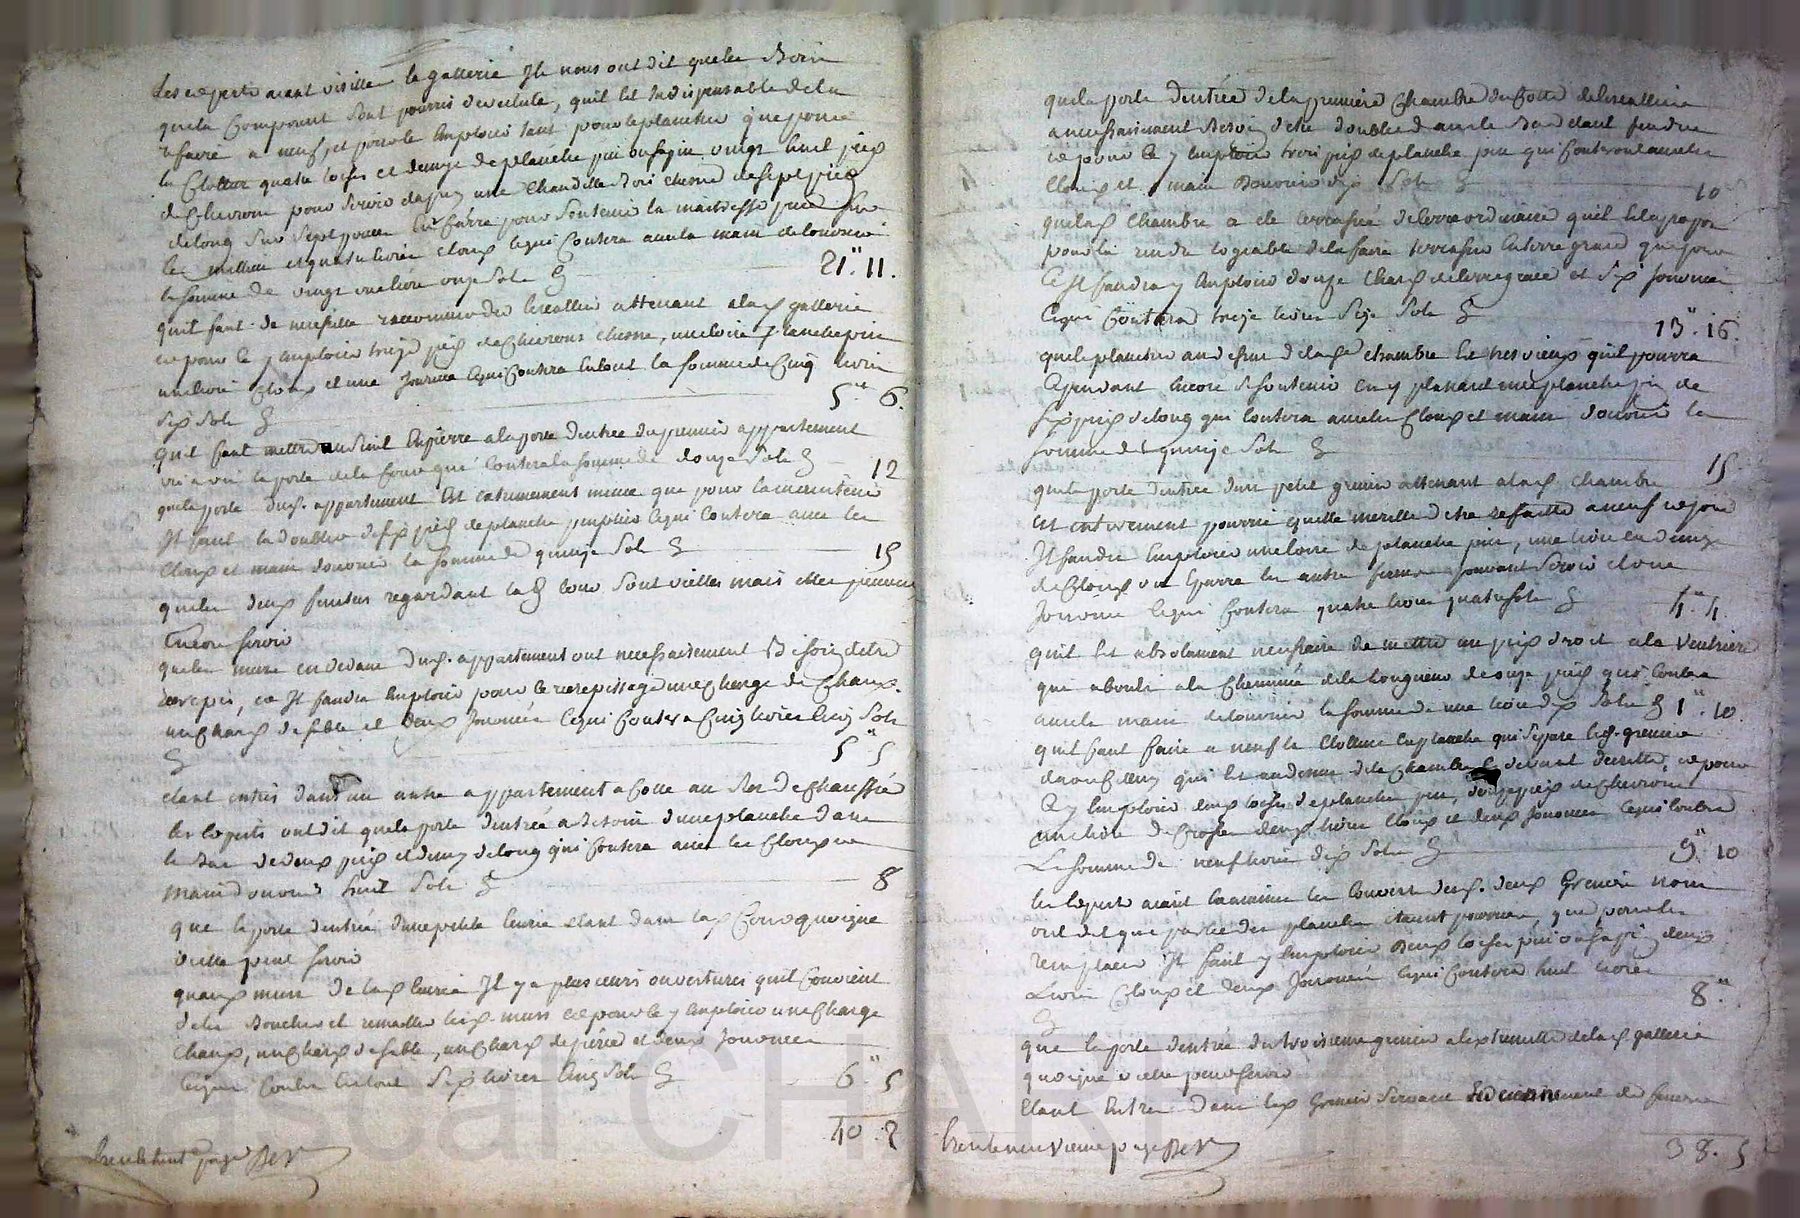 les experts aiant visitté la gallerie Ils nous ont dit que les Bois
qui la Composent sont pourris de vetusté, quil Est Indispensable de la
refaire a neuf, et pour le Emploier tant pour le plancher que pour
la Clotture quatre toises et demye de planche pin ou sapin vingt huit pieds
de Chevrons pour servir d'apuy une Chandelle Bois chesne de sept pieds
de long sur sept pouces En Carré pour soutenir la maitresse piece sur
le millieu et quatre livres Clous Ce qui Coutera avec la main de louvrier
la somme de vingt une livre onze sols 21" 11.
quil faut de necessité raccommoder lescallier attenant a lad gallerie
et pour Ce y Emploier treize pieds de Chevrons chesne, une toise planche pin
une livre Clous et une Journée Ce qui Coutera En tout la somme de Cinq livres
six sols 5" 6.
quil faut mettre un seuil En pierre a la porte dentrée du premier appartement
vis a vis la porte de la Cour qui Coutera la somme de douze sols 12
que la porte dud. appartement Est Extremement mince que pour la maintenir
Il faut la doubler de six pieds de planche Ce qui Coutera avec les
Clous et main douvrier la somme de quinze sols 15
que les deux fenetres regardant lad Cour sont vieilles mais Elles peuvent
Encore servir
que les murs en dedans dud. appartement ont necessairement Besoin detre
decrepis, et Il faudra Emploier pour le recrepissage une Charge de Chaux.
un Char de sable et deux Journées Ce qui Coutera Cinq livres Cinq sols
5" 5
Etant entrés dans un autre appartement a Cotté au Rez de Chaussée
les Experts ont dit que la porte dentrée a Besoin dune planche dans
le Bas de deux pieds et demy de long qui Coutera avec les Clous et
main douvrier huit sols 8
que la porte dentrée dune petite Ecurie Etant dans lad Cour quoique
vieille peut servir
quaux murs de lad Ecurie Il y a plusieurs ouvertures quil Convient
de les Boucher et remailler lesd. murs et pour Ce y Emploier une Charge
Chaux, un Char de sable, un Char de pierre et deux Journées
Ce qui Coutera En tout six livres Cinq sols 6" 5
40. 2
trente huit.e page
que la porte dentrée de la premiere Chambre du Cotté de lescallier
a necessairement Besoin detre doublée dans le Bas Etant fendue
et pour Ce y Emploier trois pieds de planche pin qui Couteront avec les
Clous et main douvrier dix sols 10
que lad Chambre a Eté terrassée de terre ordinaire quil Est a propos
pour la rendre logeable de la faire terrasser En terre grasse que pour
Ce Il faudra y Emploier douze Chars de terre grasse et six Journées
Ce qui Coutera treize livres seize sols 13" 16.
que le plancher au dessus de lad. chambre Est tres vieux quil pourra
Cependant Encore se soutenir En y plassant une planche pin de
six pieds de long qui Coutera avec les Clous et main douvrier la
somme de quinze sols 15
que la porte dentrée dun petit grenier attenant a lad chambre
Est entierement pourrie quelle merite detre refaitte a neuf et pour
Il faudra Emploier une toise de planche pin, une livre en demye
de Clous les autres ferrures pouvant servir et une
Journée Ce qui Coutera quatre livres quatre sols 4" 4.
quil Est absolument necessaire de mettre un pied droit a la Ventriere
qui abouti a la Cheminée de la longueur de onze pieds qui Coutera
avec la main de louvrier la somme de une livre dix sols 1" 10.
quil faut faire a neuf la Clotture En planche qui separe led. grenier
qui Est au dessus de la Chambre devant decritte, et pour
Ce y Emploier deux toises de planche pin, pieds de Chevrons
une livre de deux livres Clous et deux Journées Ce qui Coutera
la somme de neuf livres dix sols 9" 10
les Experts aiant Examiné les Couverts desd. deux Greniers nous
ont dit que partie des planches etaient pourries, que pour les
remplacer Il faut y Emploier deux toises pin ou sapin deux
Livres Clous et deux Journées Ce qui Coutera huit livres
8."
que la porte dentrée du troisieme grenier a lextremitté de lad gallerie
quoique vieille peut servir
Etant Entrés dans led Grenier servant
38. 5
trente neuvieme page